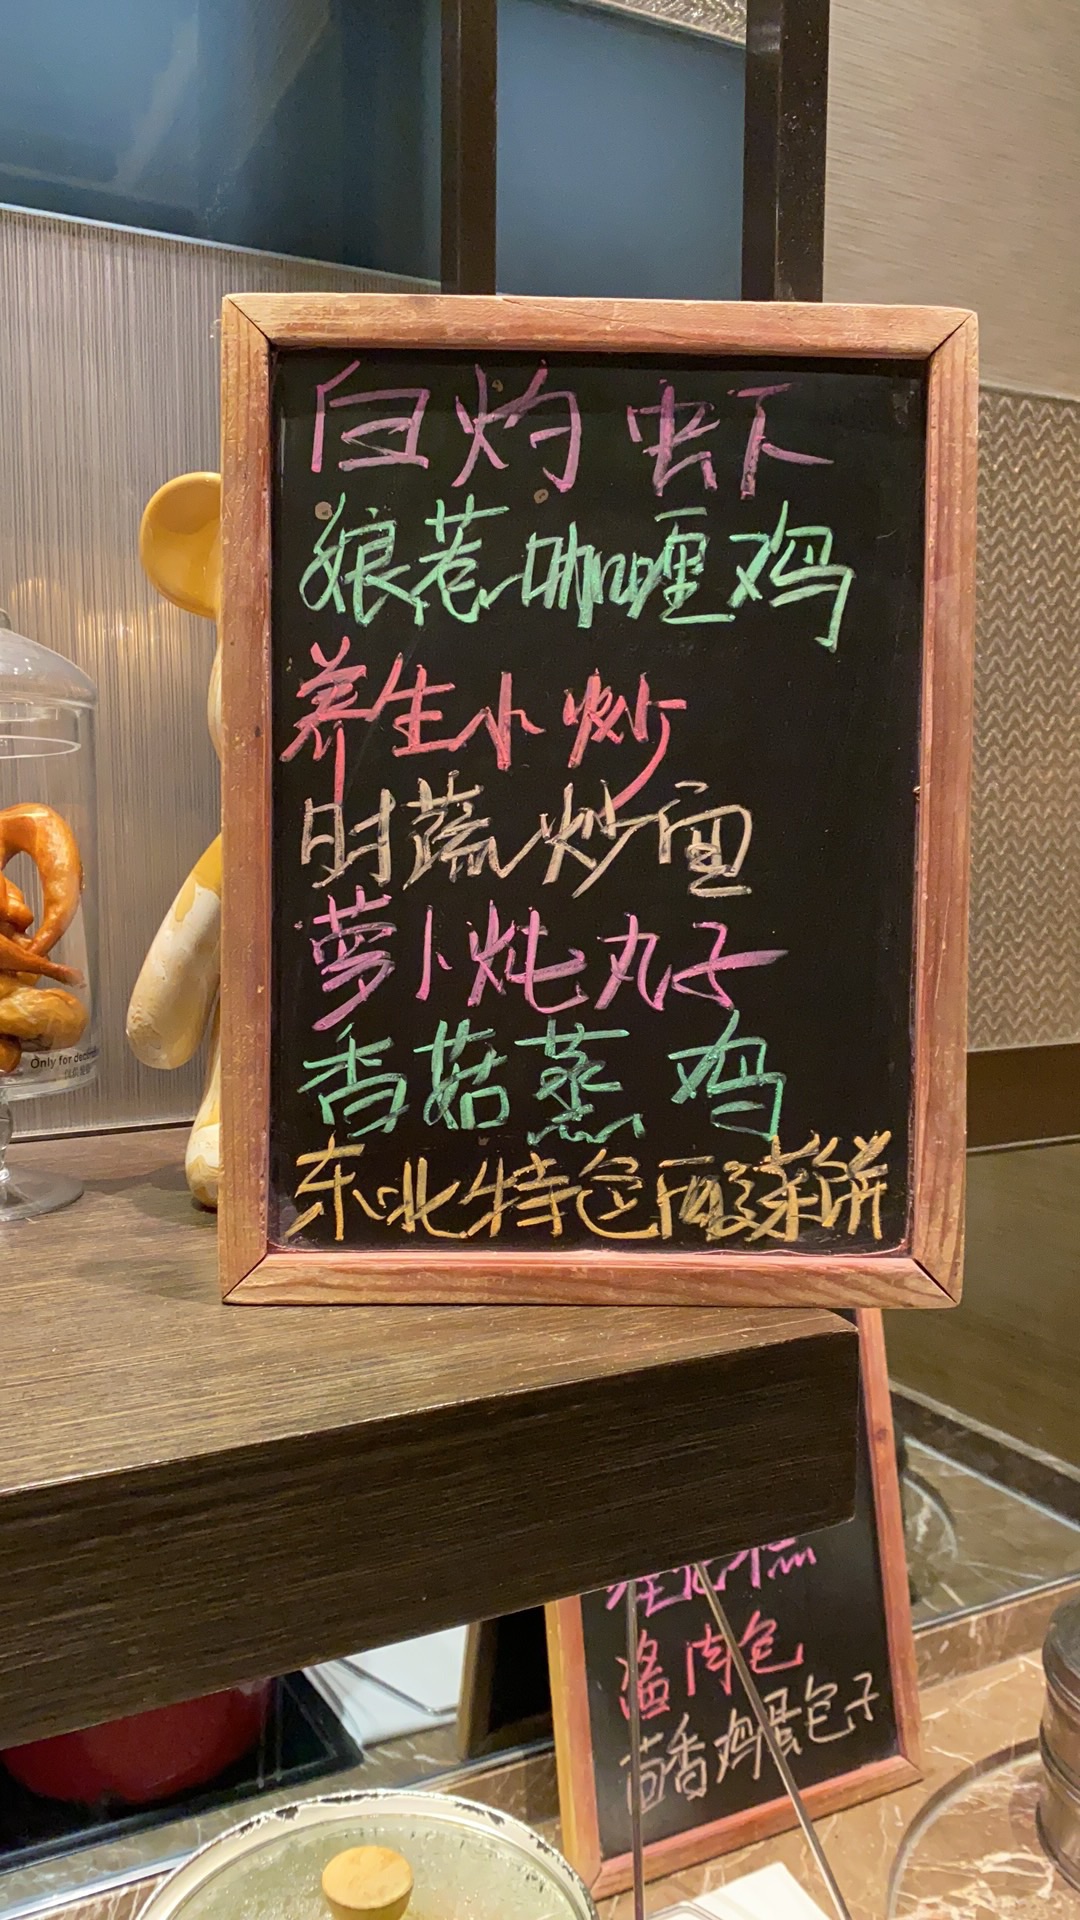 白灼虾
娘惹咖喱鸡
养生小炒
时蔬炒面
萝卜炖丸子
香菇蒸鸡
东北特色酸菜饼
Only for deco
酱肉包
茴香鸡蛋包子